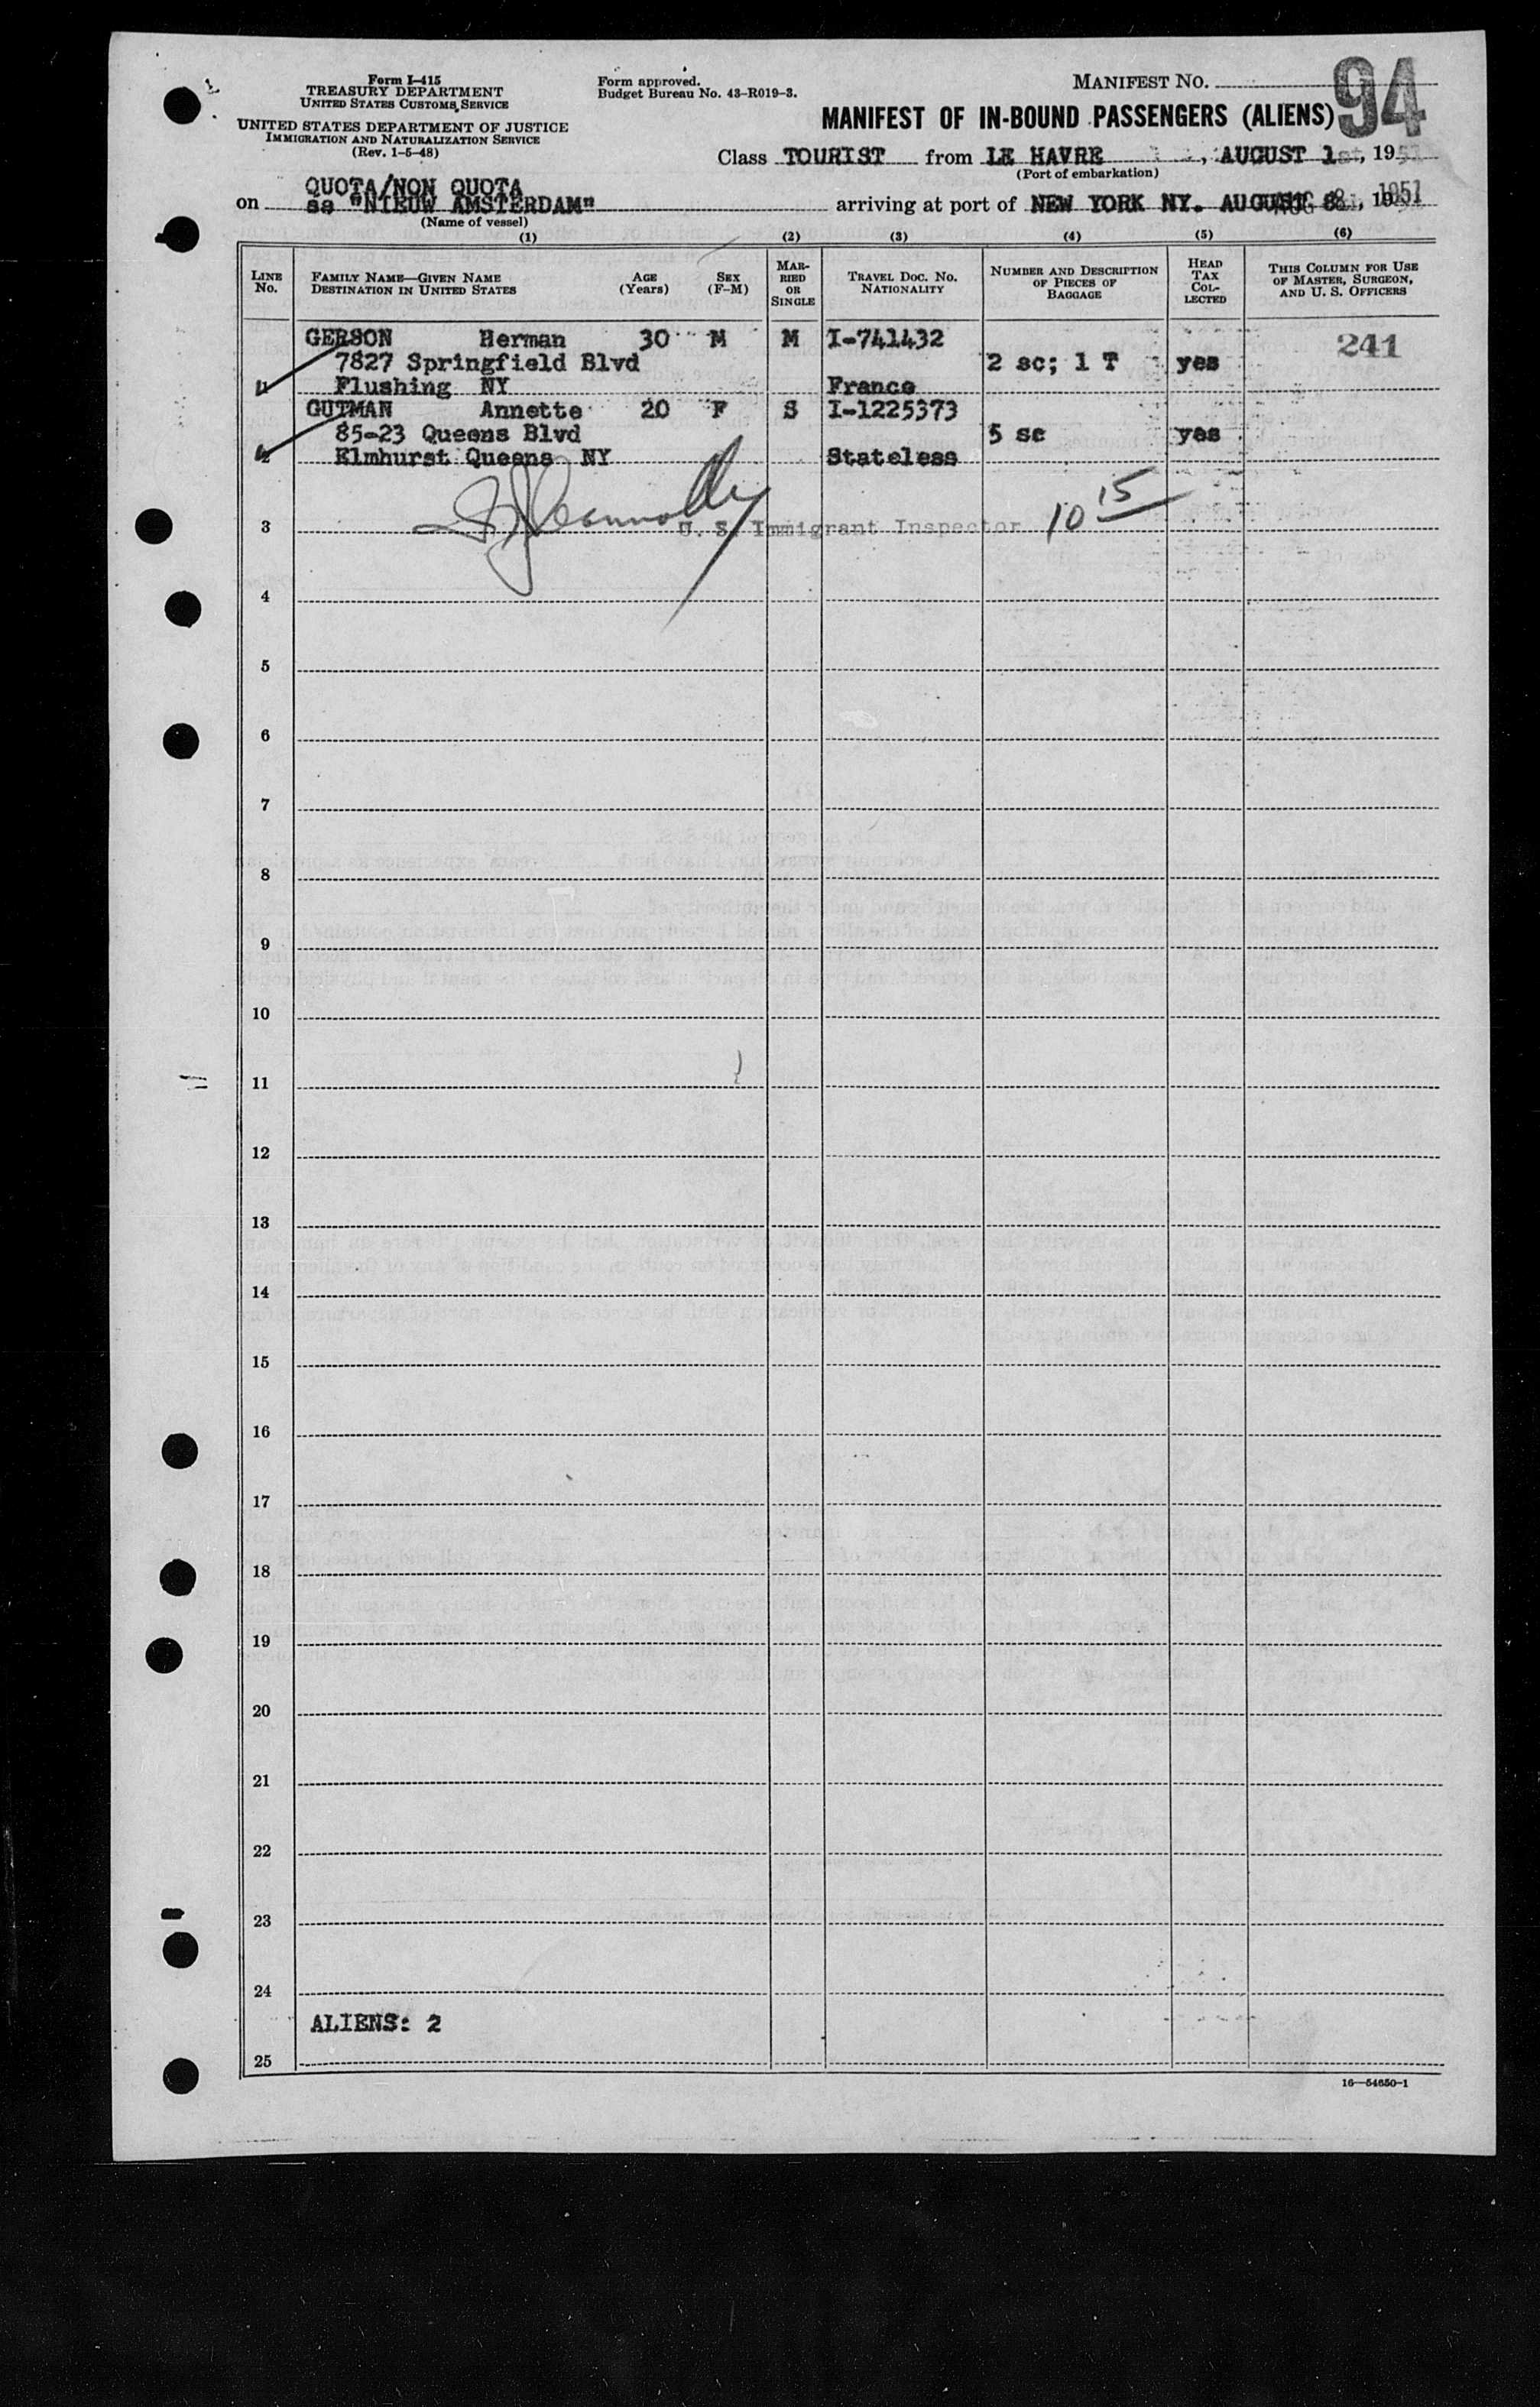 Form I-415
TREASURY DEPARTMENT
UNITED STATES CUSTOMS SERVICE
UNITED STATES DEPARTMENT OF JUSTICE
IMMIGRATION AND NATURALIZATION SERVICE
(Rev. 1-5-48)
Form approved.
Budget Bureau No. 43-R019-3.
MANIFEST NO. 94
MANIFEST OF IN-BOUND PASSENGERS (ALIENS)
Class TOURIST from LE HAVRE, AUGUST 1st, 1951
(Port of embarkation)
QUOTA/NON QUOTA
on ss "NIEUW AMSTERDAM" arriving at port of NEW YORK NY. AUGUST 8, 1951
(Name of vessel)
(1) (2) (3) (4) (5) (6)
LINE No. FAMILY NAME—GIVEN NAME DESTINATION IN UNITED STATES AGE (Years) SEX (F-M) MARRIED OR SINGLE TRAVEL DOC. NO. NATIONALITY NUMBER AND DESCRIPTION OF PIECES OF BAGGAGE HEAD TAX COLLECTED THIS COLUMN FOR USE OF MASTER, SURGEON, AND U. S. OFFICERS
GERSON Herman 30 M M I-741432 241
7827 Springfield Blvd 2 sc; 1 T yes
1 Flushing NY France
GUTMAN Annette 20 F S I-1225373
85-23 Queens Blvd 5 sc yes
2 Elmhurst Queens NY Stateless
3 U. S. Immigrant Inspector 10 15
4
5
6
7
8
9
10
11
12
13
14
15
16
17
18
19
20
21
22
23
24
ALIENS: 2
25
16—54650-1